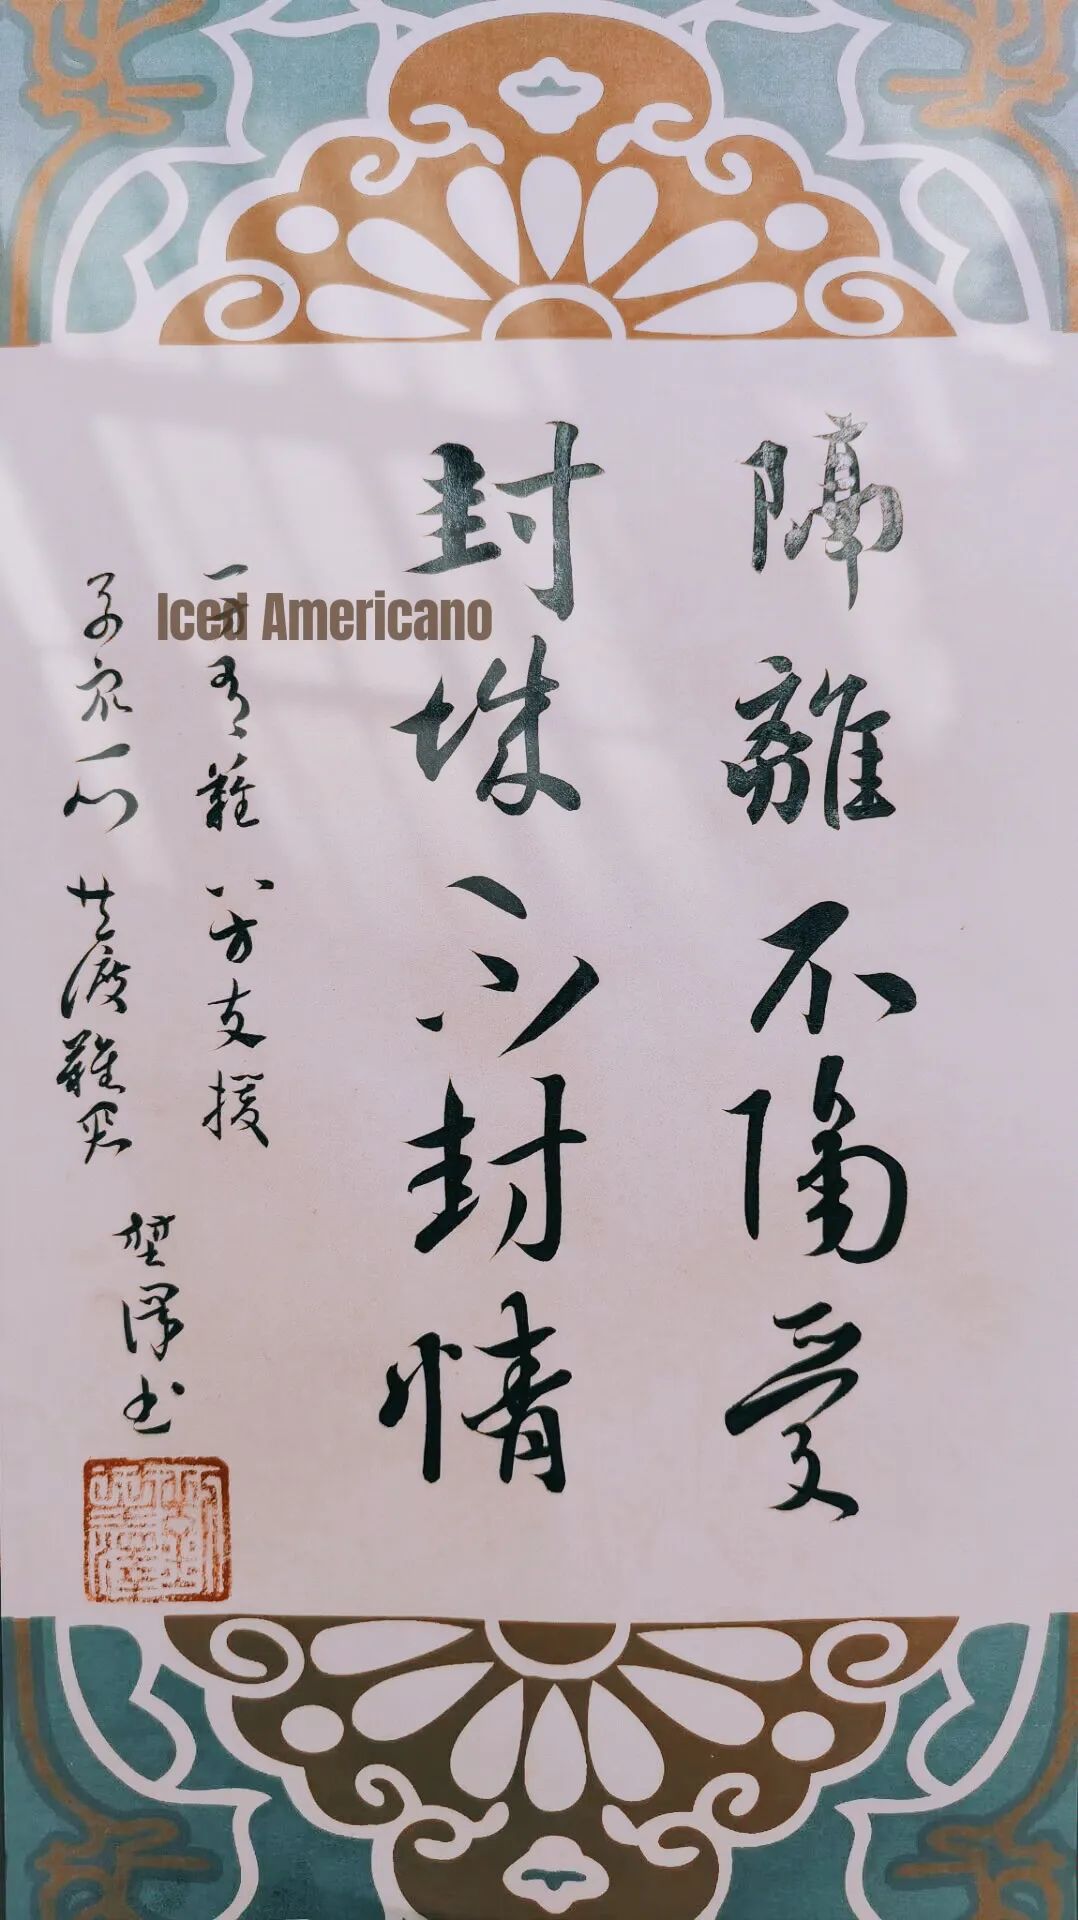 隔離不隔愛
封城不封情
一方有難 八方支援
万众一心 共渡難関
埜澤书
Iced Americano